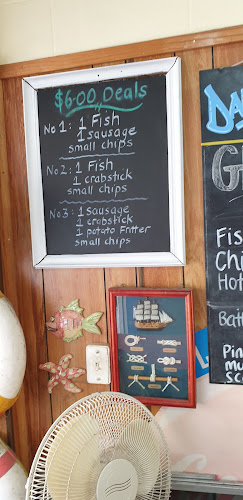 $6.00 Deals
No 1: 1 Fish
1 Sausage
small chips
No.2: 1 Fish
1 crabstick
small chips
No.3: 1 Sausage
1 crabstick
1 potato Fritter
small chips
DA
G
Fis
Chi
Hot
Bat
Pin
mu
Sc